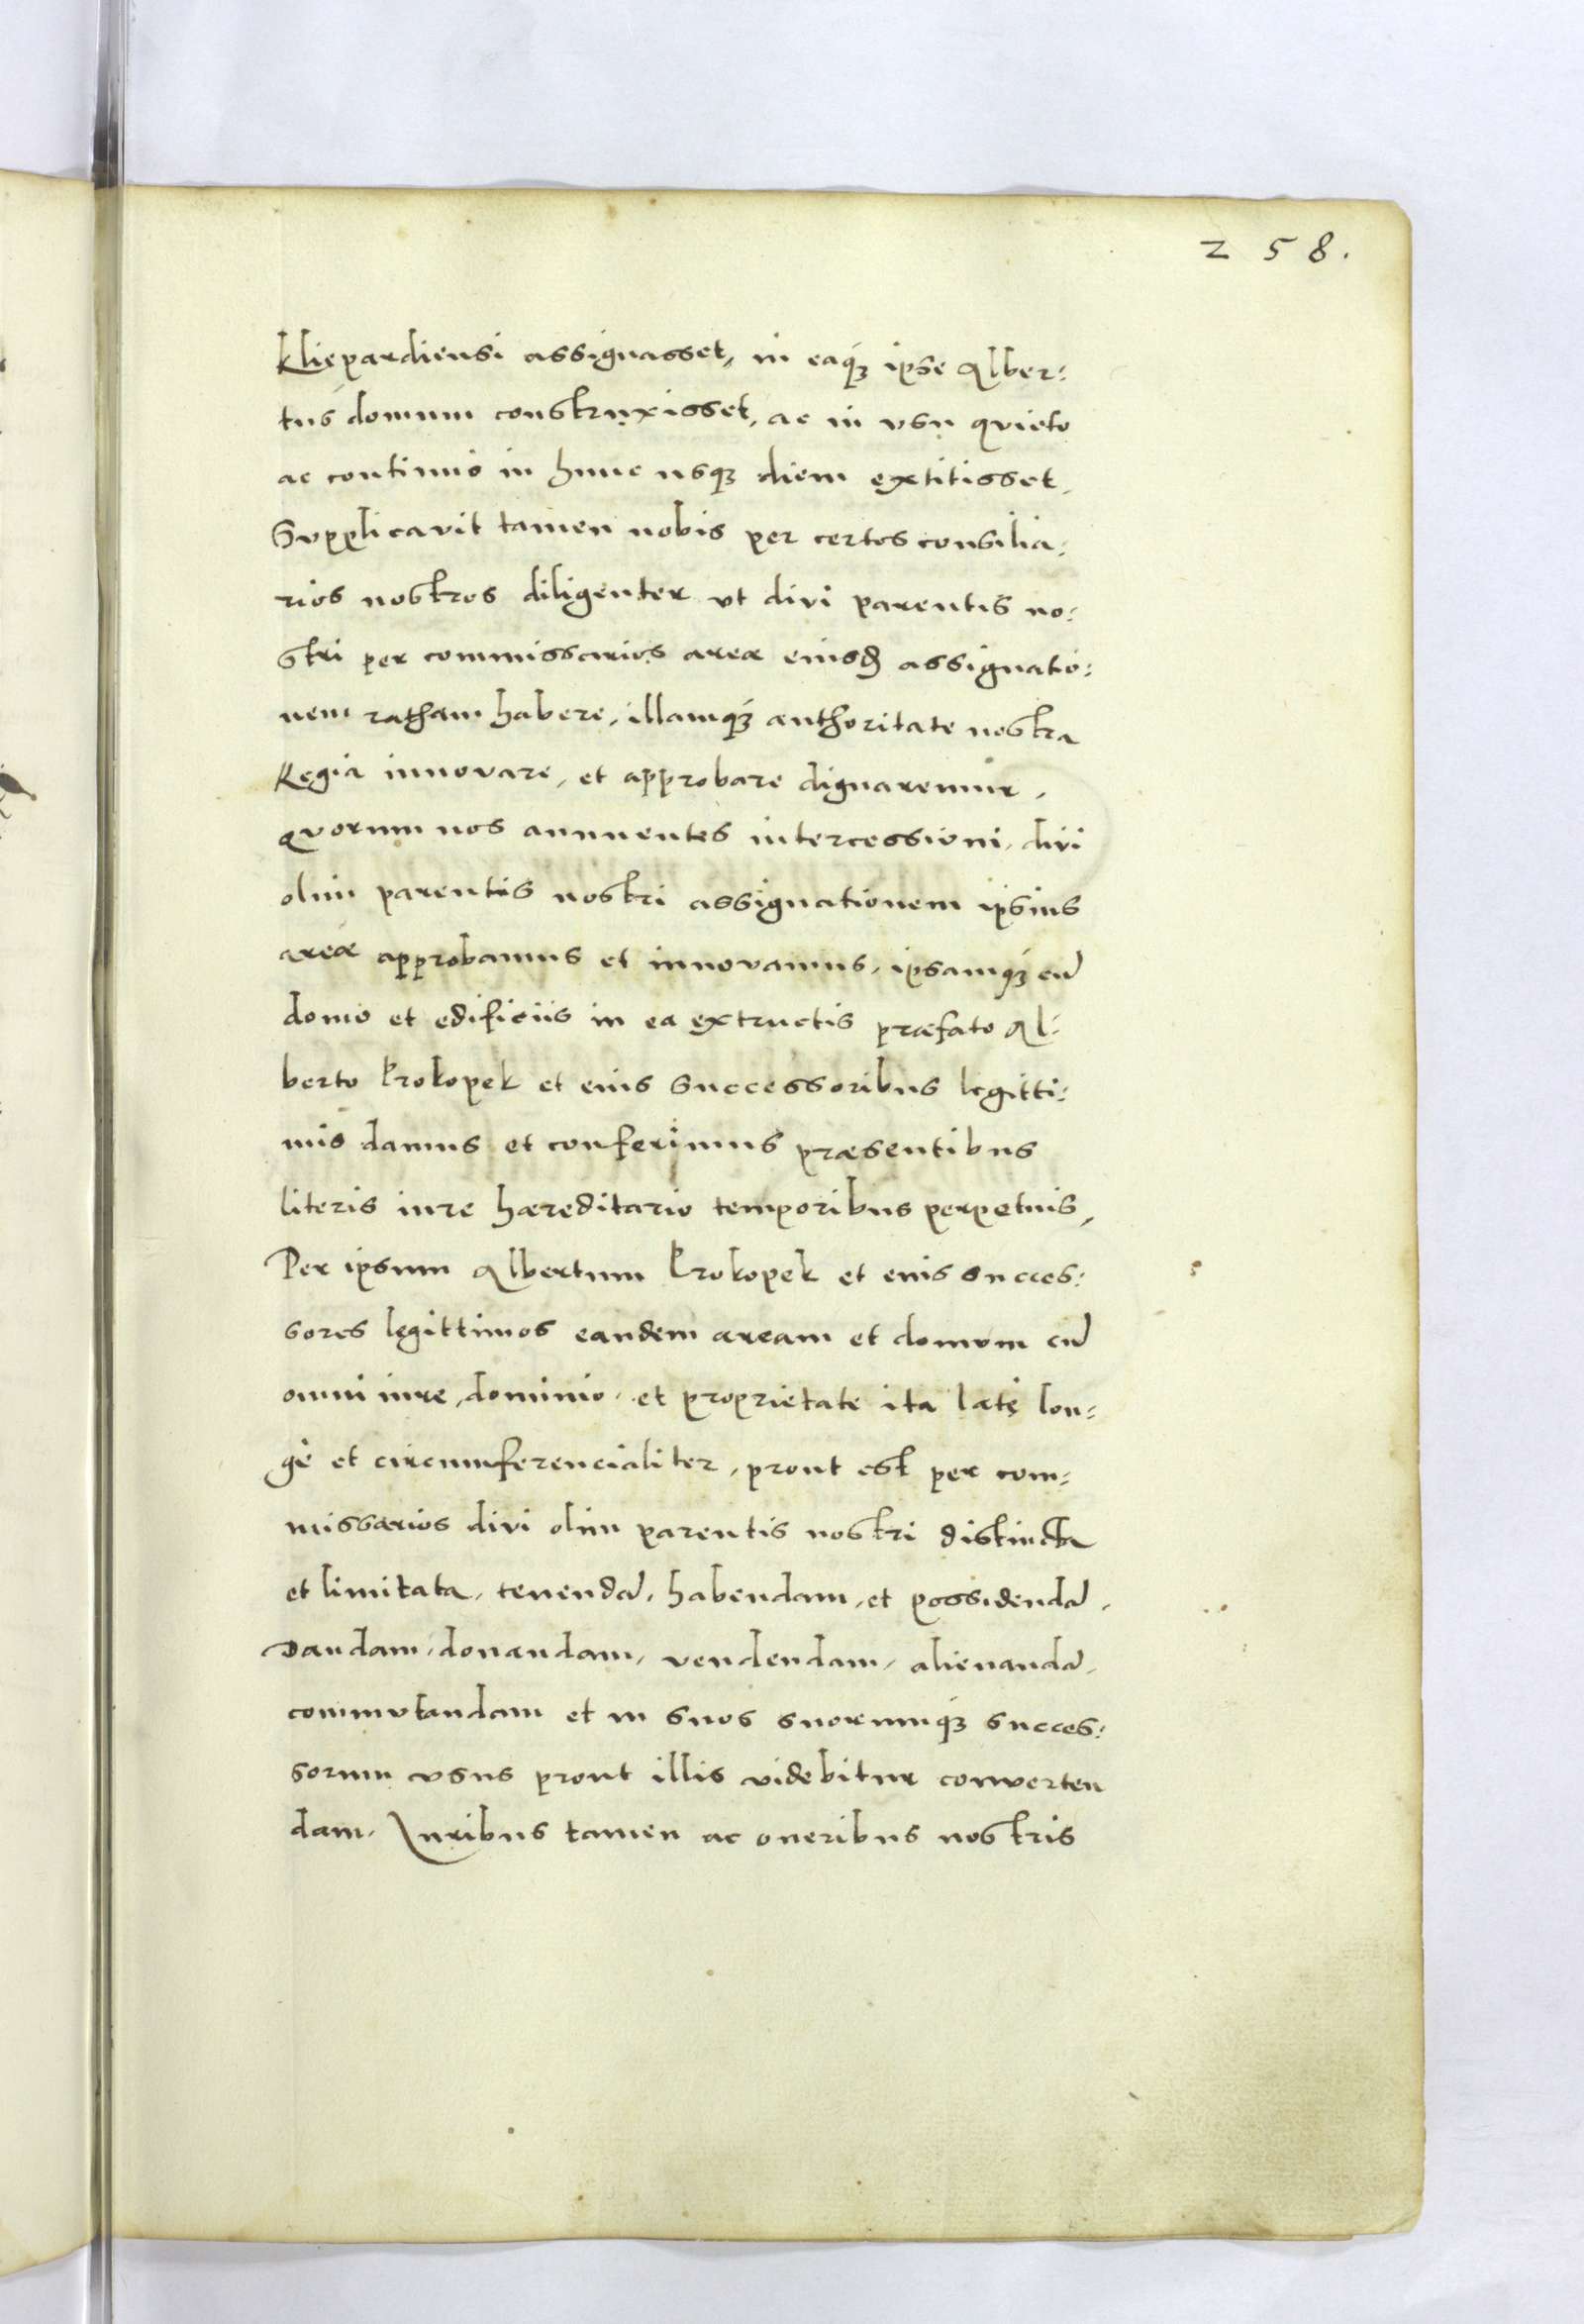 258.
Kliepardiensi assignasset, in eaq́ꝫ ipse Alber:
tus domum construxisset, ac in vsu quieto
ac continuo in hunc usqꝫ diem extitisset,
Supplicavit tamen nobis per certos consilia:
rios nostros diligenter vt divi parentis no:
stri per commissarios areæ eiusđ assignatio:
nem ratham habere, illamq́ꝫ authoritate nostra
Regia innovare, et approbare dignaremur,
Quorum nos annuentes intercessioni, divi
olim parentis nostri assignationem ipsius
areæ approbamus et innovamus, ipsamq́ꝫ cū
domo et edificiis in ea extructis præfato Al:
berto Krokopek et eius successoribus legitti:
mis damus et conferimus præsentibus
literis iure hæreditario temporibus perpetuis,
Per ipsum Albertum Krokopek et eius succes:
sores legittimos eandem aream et domum cū
omni iure, dominio, et proprietate ita latę lon:
gè et circumferencialiter, prout est per com:
missarios divi olim parentis nostri distincta
et limitata, tenendā, habendam, et possidendā,
Dandam, donandam, vendendam, alienandā,
commutandam et in suos suorumq́ꝫ succes:
sorum vsus prout illis videbitur converten
dam. Iuribus tamen ac oneribus nostris